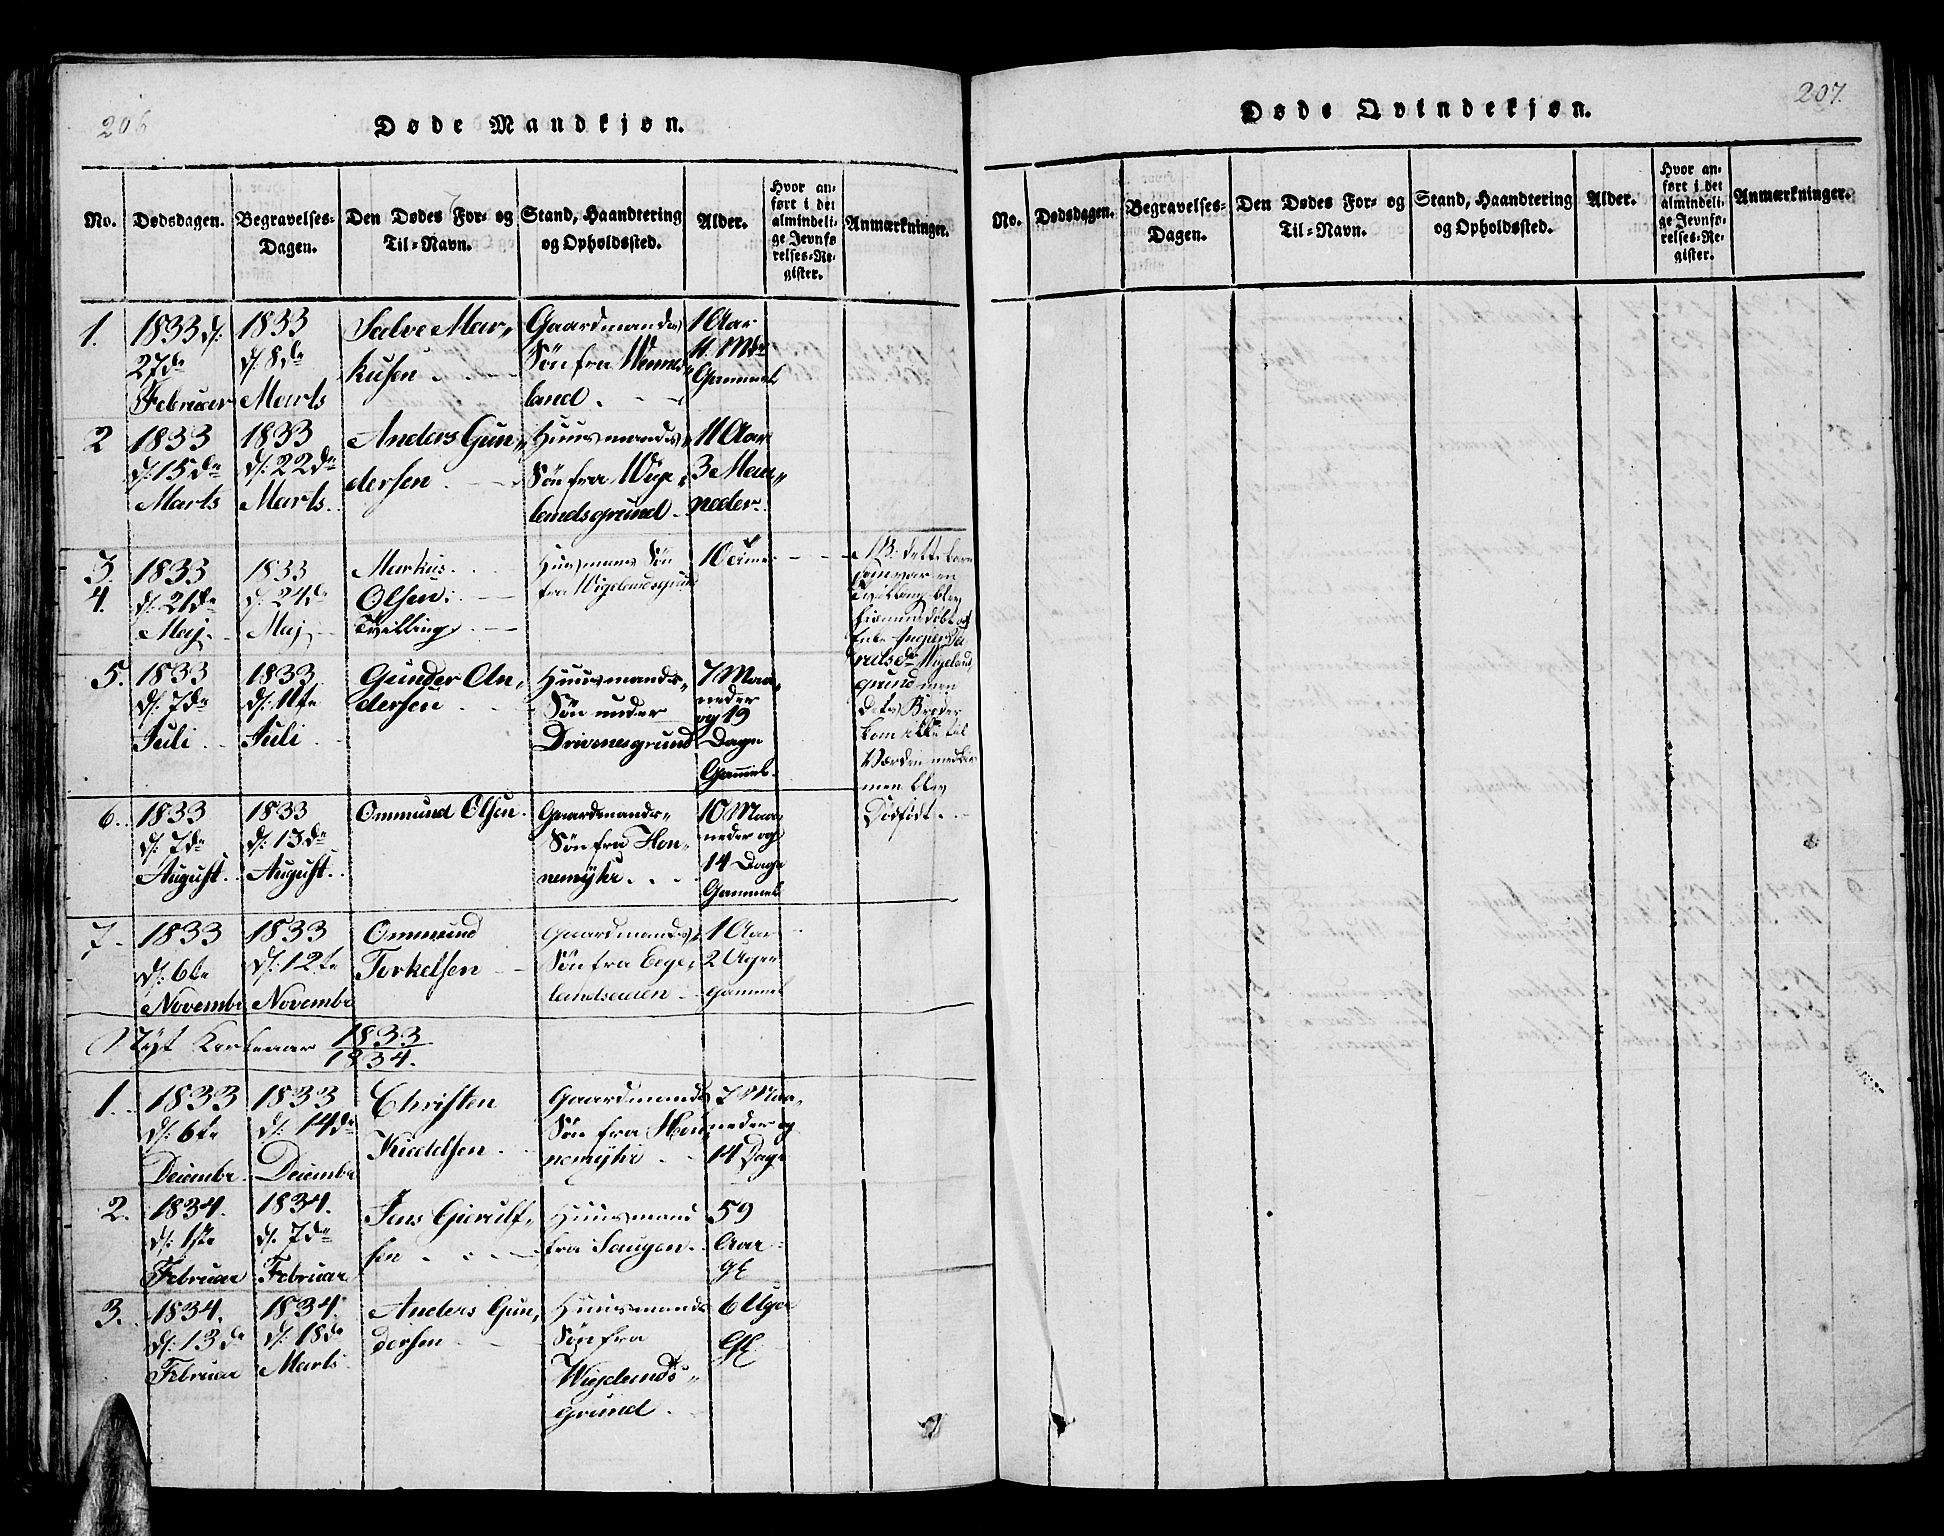 206
Døde Mandkjøn.
No.
Dødsdagen.
Begravelses-
Dagen.
Den Dødes For- og
Til-Navn.
Stand, Haandtering
og Opholdssted.
Alder.
Hvor an-
ført i det
almindeli-
ge Jevnfø
relses-Re-
gister.
Anmærkninger.
1.
1833 d:
27de
Februar
1833
d: 8de
Marts
Salve Mar-
kusen
Gaardmands
Søn fra
land.
1 Aar
Gammel
2
1833
d: 15de
Marts
1833
d: 22de
Marts.
Anders Gun-
dersen
Huusmands
Søn fra Wige-
landsgrund
11 Aar
3 Maa-
neder.
3.
4.
1833
d: 21de
Maj
1833
d: 24de
Maj
Markus
Olsen
Tvilling
Huusmans Søn
fra Wigelandsgrund
NB. dette barn
som var en
Tvilling blev
Wigeland
grund men
dets Broder
kom ikke til
Verden
men blev
Dødfødt.
5.
1833
d: 7de
Juli
1833
d: 11te
Juli
Gunder An-
dersen
Huusmands-
Søn under
Drivenesgrund
7 Maa-
neder
og 19
Dage
Gammel
6.
1833
d: 7de
August.
1833
d: 13de
August.
Ommund Olsen.
Gaardmands-
Søn fra Hon-
nemyhr
10 Maa-
neder og
14 Dage
Gammel
7.
1833
d: 6te
Novembr
1833
d: 12te
Novembr
Ommund
Torkelsen
Gaardmands
Søn fra Ege-
landsaaen
1 Aar
2 Uger
gammel
Nyt Kirkeaar 1833
1834.
1.
1833
d: 6te
Decembr.
1833
d: 14de
Decembr
Christen
Kieddelsen
Gaardmands
Søn fra Hon-
nemyhr
7 Maa-
neder og
14 Dage
2.
1834.
d: 1ste
Februar
1834.
d: 7de
Februar
Jens Gierulf-
sen
Huusmand
fra Saugen.
59
Aar
gl
3.
1834.
d: 13de
Februar
1834.
d: 18de
Marts
Anders Gun-
dersen
Huusmands
Søn fra
Wigelands-
grund
6 Uger
Gl
207.
Døde Qvindekjøn.
No.
Dødsdagen.
Begravelses-
Dagen.
Den Dødes For- og
Til-Navn.
Stand, Haandtering
og Opholdssted.
Alder.
Hvor an-
ført i det
almindeli-
ge Jevnfø-
relses-Re-
gister.
Anmærkninger.